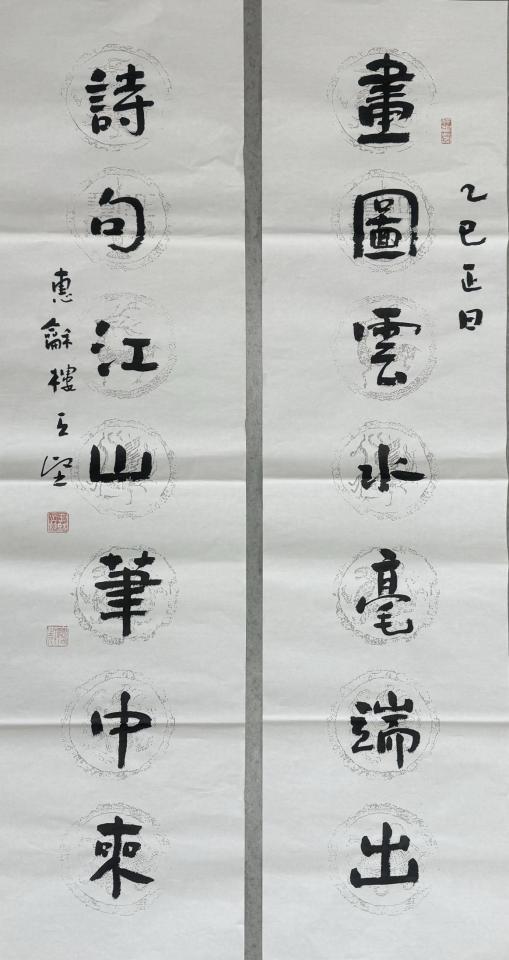 乙巳正日
畫圖雲水毫端出
詩句江山筆中來
惠龢樓王